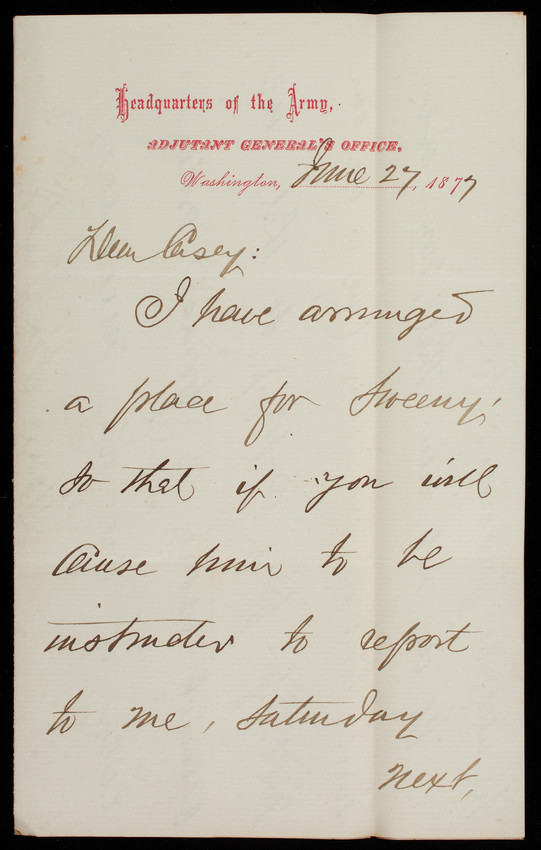 Headquarters of the Army,
ADJUTANT GENERAL'S OFFICE,
Washington, June 27, 1877
Dear Casey:
I have arranged
a place for Sweeny,
so that if you will
cause him to be
instructed to report
to me, Saturday
next,